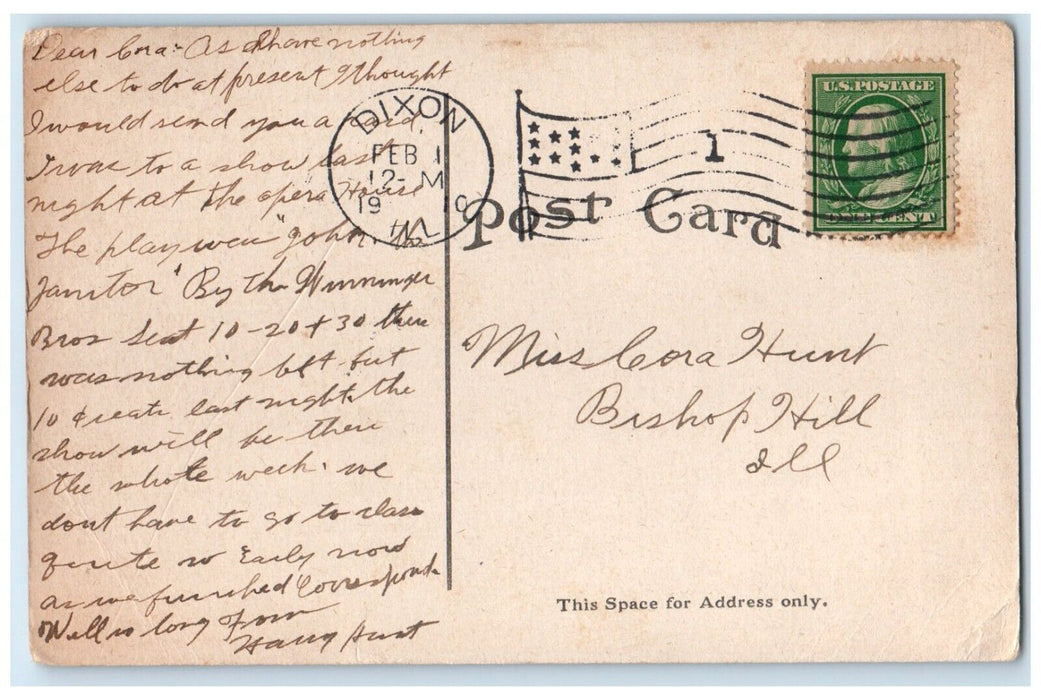 Dear Cora:- As I have nothing
else to do at present I thought
I would send you a card.
I was to a show last
night at the opera House
The play was "John the
Janitor" By the Winninger
Bros Seat 10-20+30 there
was nothing left but
10 ¢ seats last night. the
show will be there
the whole week. we
dont have to go to class
quite so Early now
as we finished Correspond.
Well so long From
Harry Hunt
DIXON
FEB 1
12-M
19
ILL
1
U.S. POSTAGE
ONE CENT
Post Card
Miss Cora Hunt
Bishop Hill
Ill
This Space for Address only.